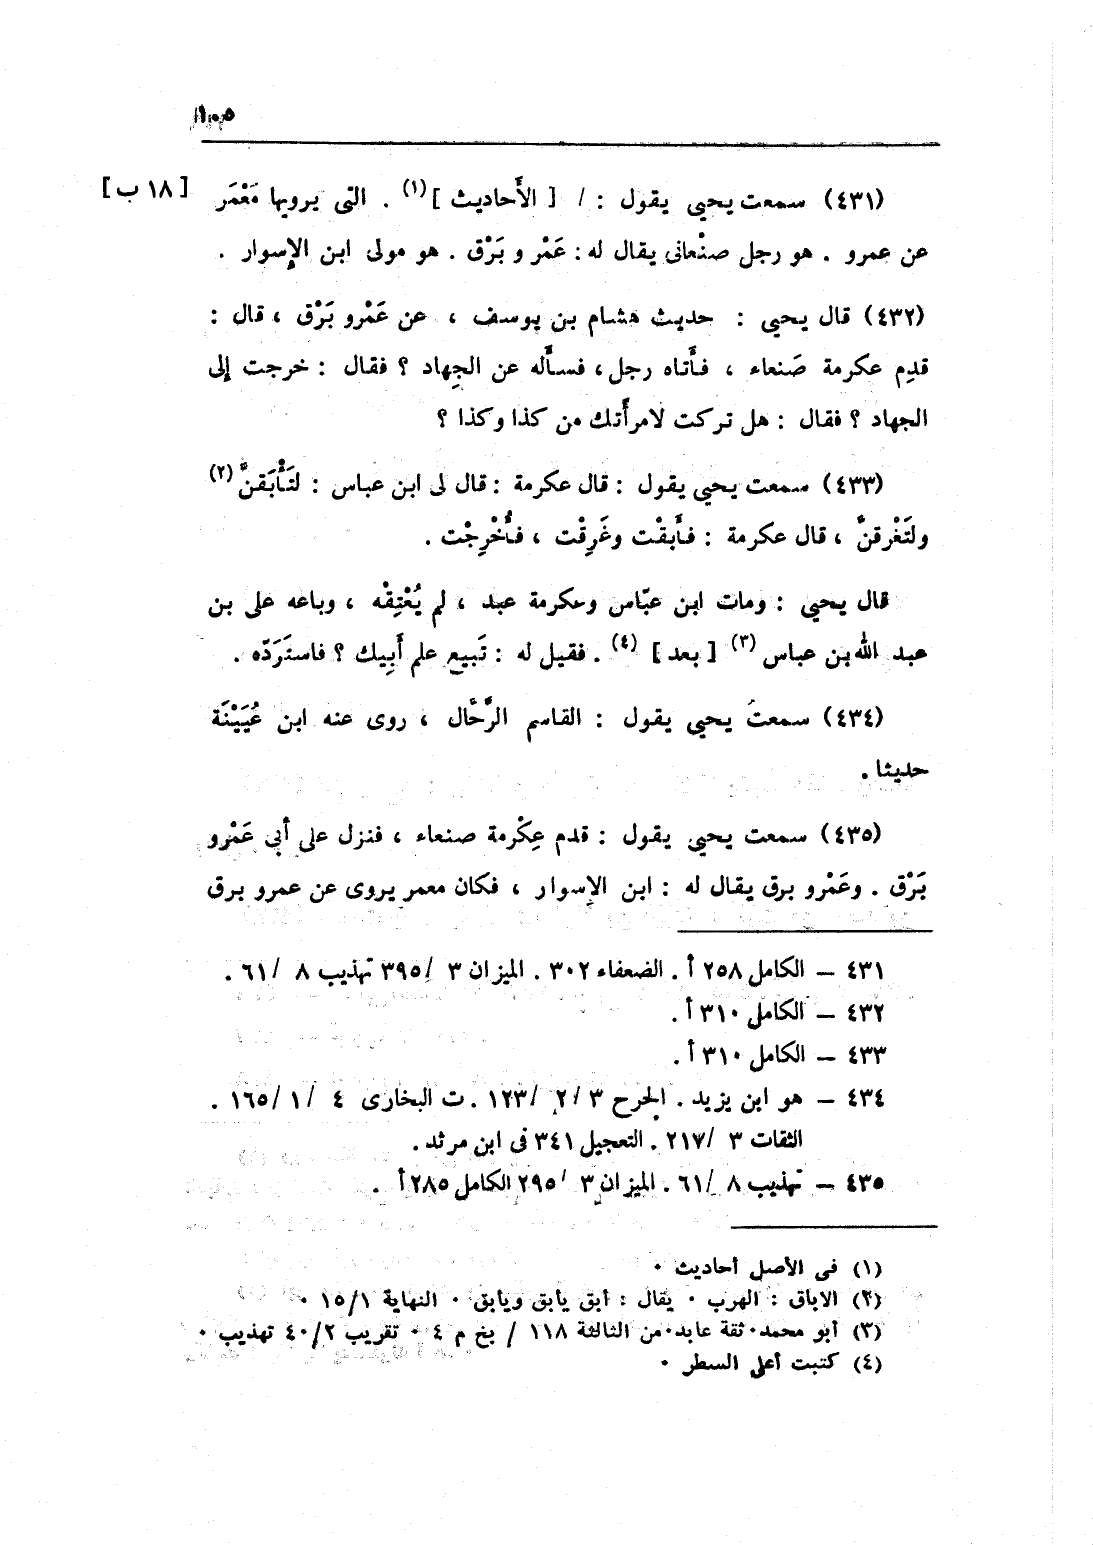 ١٠٥
(٤٣١) سمعت يحيي يقول : / [ الأَحاديث ] (١) . التى يرويها مَعْمَر [ ١٨ ب ]
عن عمرو . هو رجل صنْعانى يقال له : عَمْر و بَرْق . هو مولى ابن الإِسوار .
(٤٣٢) قال يحيي : حديث هشام بن يوسف ، عن عَمْرو بَرْق ، قال :
قدِم عكرمة صَنعاء ، فأَتاه رجل ، فسأَله عن الجِهاد ؟ فقال : خرجت إلى
الجهاد ؟ فقال : هل تركت لامرأَتك من كذا وكذا ؟
(٤٣٣) سمعت يحيي يقول : قال عكرمة : قال لى ابن عباس : لتَأْبَقنَّ (٢)
ولتَغْرقنَّ ، قال عكرمة : فأَبقْت وغَرِقْت ، فأُخْرِجْت .
قال يحيي : ومات ابن عبّاس وعكرمة عبد ، لم يُعْتِقْه ، وباعه على بن
عبد الله بن عباس (٣) [ بعد ] (٤) . فقيل له : تَبيع علم أَبِيك ؟ فاستَرَدّه .
(٤٣٤) سمعتُ يحيي يقول : القاسم الرَّحَّال ، روى عنه ابن عُيَيْنَة
حديثا .
(٤٣٥) سمعت يحيي يقول : قدم عِكْرمة صنعاء ، فنزل على أَبى عَمْرو
بَرْق . وعَمْرو برق يقال له : ابن الإِسوار ، فكان معمر يروى عن عمرو برق
٤٣١ – الكامل ٢٥٨ أ . الضعفاء ٣٠٢ . الميزان ٣ /٣٩٥ تهذيب ٨ /٦١ .
٤٣٢ – الكامل ٣١٠ أ .
٤٣٣ – الكامل ٣١٠ أ .
٤٣٤ – هو ابن يزيد . الجرح ٣ /٢ /١٢٣ . ت البخارى ٤ /١ /١٦٥ .
الثقات ٣ /٢١٧ . التعجيل ٣٤١ فى ابن مرثد .
٤٣٥ – تهذيب ٨ /٦١ . الميزان ٣ /٢٩٥ الكامل ٢٨٥ أ .
(١) فى الأصل أحاديث ٠
(٢) الاباق : الهرب ٠ يقال : أبق يأبق ويأبق ٠ النهاية ١٥/١ ٠
(٣) أبو محمد٠ ثقة عابد٠ من الثالثة ١١٨ / بخ م ٤ ٠ تقريب ٤٠/٢ تهذيب ٠
(٤) كتبت أعلى السطر ٠